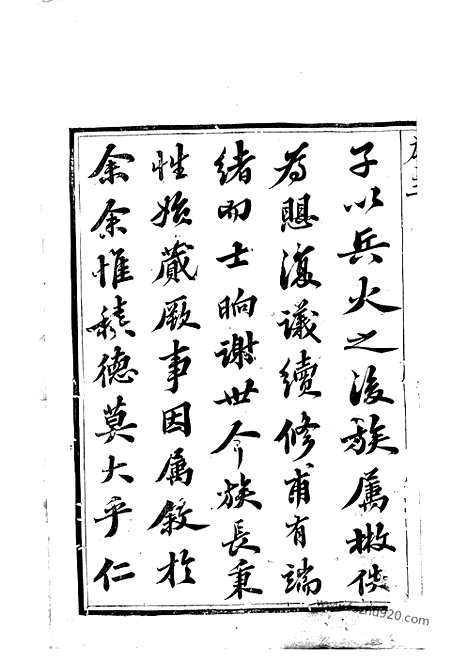 子以兵火之後族屬散佚
為懸復議續修甫有端
緒而士晌謝世今族長秉
性始蕆厥事因屬敘於
余余惟積德莫大乎仁
shuzhu920.com